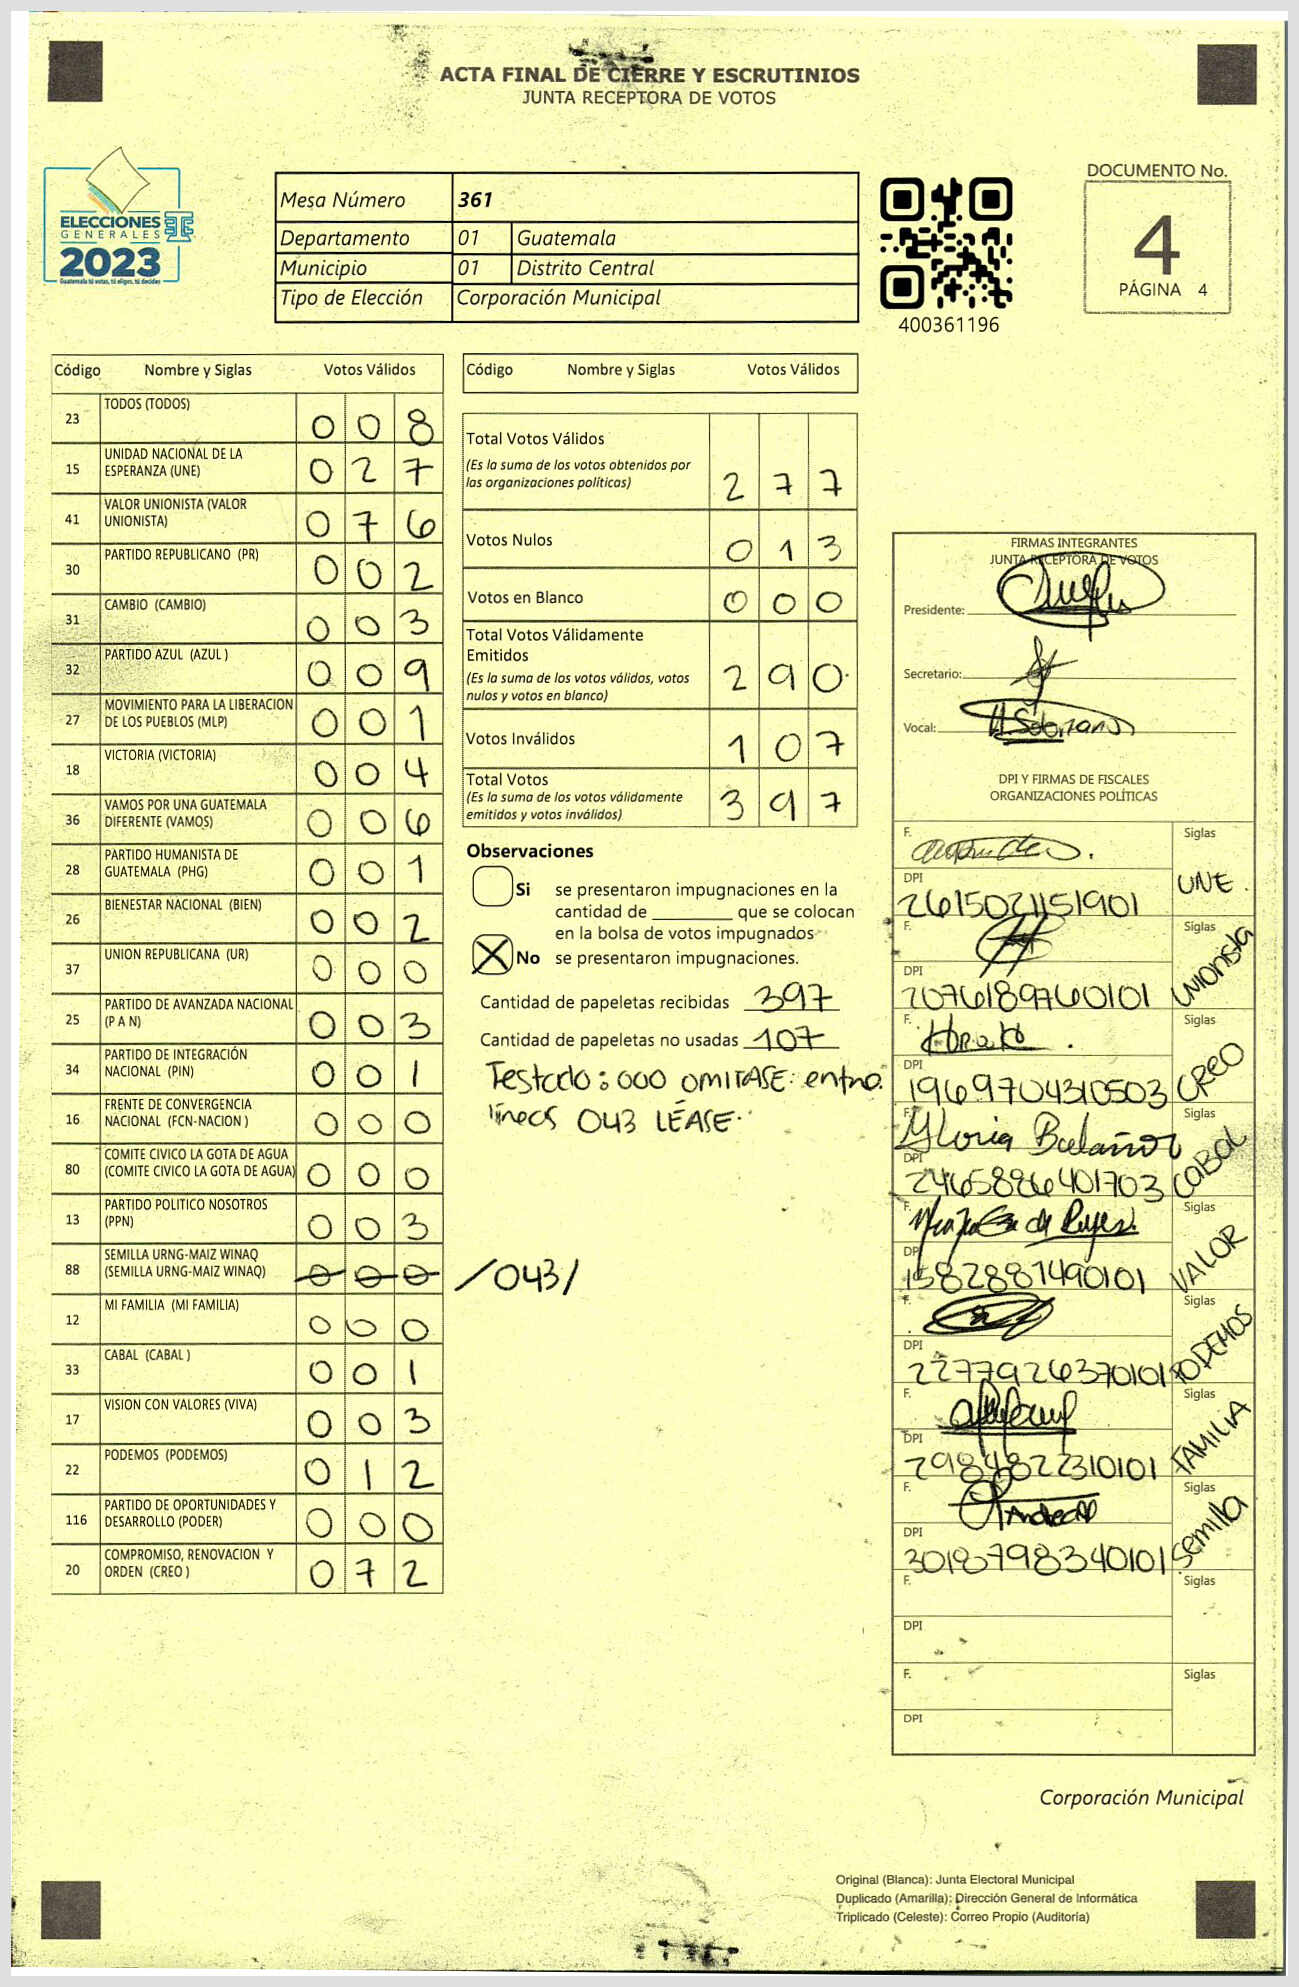 ACTA FINAL DE CIERRE Y ESCRUTINIOS
JUNTA RECEPTORA DE VOTOS
ELECCIONES
GENERALES
2023
Guatemala tú votas, tú eliges, tú decides
Mesa Número 361
Departamento 01 Guatemala
Municipio 01 Distrito Central
Tipo de Elección Corporación Municipal
400361196
DOCUMENTO No.
4
PÁGINA 4
Código Nombre y Siglas Votos Válidos
23 TODOS (TODOS) 0 0 8
15 UNIDAD NACIONAL DE LA
ESPERANZA (UNE) 0 2 7
41 VALOR UNIONISTA (VALOR
UNIONISTA) 0 7 6
30 PARTIDO REPUBLICANO (PR) 0 0 2
31 CAMBIO (CAMBIO) 0 0 3
32 PARTIDO AZUL (AZUL ) 0 0 9
27 MOVIMIENTO PARA LA LIBERACION
DE LOS PUEBLOS (MLP) 0 0 1
18 VICTORIA (VICTORIA) 0 0 4
36 VAMOS POR UNA GUATEMALA
DIFERENTE (VAMOS) 0 0 6
28 PARTIDO HUMANISTA DE
GUATEMALA (PHG) 0 0 1
26 BIENESTAR NACIONAL (BIEN) 0 0 2
37 UNION REPUBLICANA (UR) 0 0 0
25 PARTIDO DE AVANZADA NACIONAL
(P A N) 0 0 3
34 PARTIDO DE INTEGRACIÓN
NACIONAL (PIN) 0 0 1
16 FRENTE DE CONVERGENCIA
NACIONAL (FCN-NACION ) 0 0 0
80 COMITE CIVICO LA GOTA DE AGUA
(COMITE CIVICO LA GOTA DE AGUA) 0 0 0
13 PARTIDO POLITICO NOSOTROS
(PPN) 0 0 3
88 SEMILLA URNG-MAIZ WINAQ
(SEMILLA URNG-MAIZ WINAQ) 0 0 0 /043/
12 MI FAMILIA (MI FAMILIA) 0 0 0
33 CABAL (CABAL ) 0 0 1
17 VISION CON VALORES (VIVA) 0 0 3
22 PODEMOS (PODEMOS) 0 1 2
116 PARTIDO DE OPORTUNIDADES Y
DESARROLLO (PODER) 0 0 0
20 COMPROMISO, RENOVACION Y
ORDEN (CREO ) 0 7 2
Código Nombre y Siglas Votos Válidos
Total Votos Válidos
(Es la suma de los votos obtenidos por
las organizaciones políticas) 2 7 7
Votos Nulos 0 1 3
Votos en Blanco 0 0 0
Total Votos Válidamente
Emitidos
(Es la suma de los votos válidos, votos
nulos y votos en blanco) 2 9 0
Votos Inválidos 1 0 7
Total Votos
(Es la suma de los votos válidamente
emitidos y votos inválidos) 3 9 7
Observaciones
Si se presentaron impugnaciones en la
cantidad de ________ que se colocan
en la bolsa de votos impugnados
No se presentaron impugnaciones.
Cantidad de papeletas recibidas 397
Cantidad de papeletas no usadas 107
Testado: 000 OMITASE: entre
líneas 043 LÉASE.
FIRMAS INTEGRANTES
JUNTA RECEPTORA DE VOTOS
Presidente:
Secretario:
Vocal:
DPI Y FIRMAS DE FISCALES
ORGANIZACIONES POLÍTICAS
F. Siglas
DPI UNE.
2615021151901
F. Siglas
DPI Unionista
2076189760101
F. Siglas
DPI CREO
1969704310503
F. Gloria Bolaños Siglas
DPI CABAL
2465886401703
F. Siglas
DPI VALOR
1582887490101
F. Siglas
DPI PODEMOS
2277926370101
F. Siglas
DPI FAMILIA
2984822310101
F. Siglas
DPI Semilla
3018798340101
F. Siglas
DPI
F. Siglas
DPI
Corporación Municipal
Original (Blanca): Junta Electoral Municipal
Duplicado (Amarilla): Dirección General de Informática
Triplicado (Celeste): Correo Propio (Auditoría)